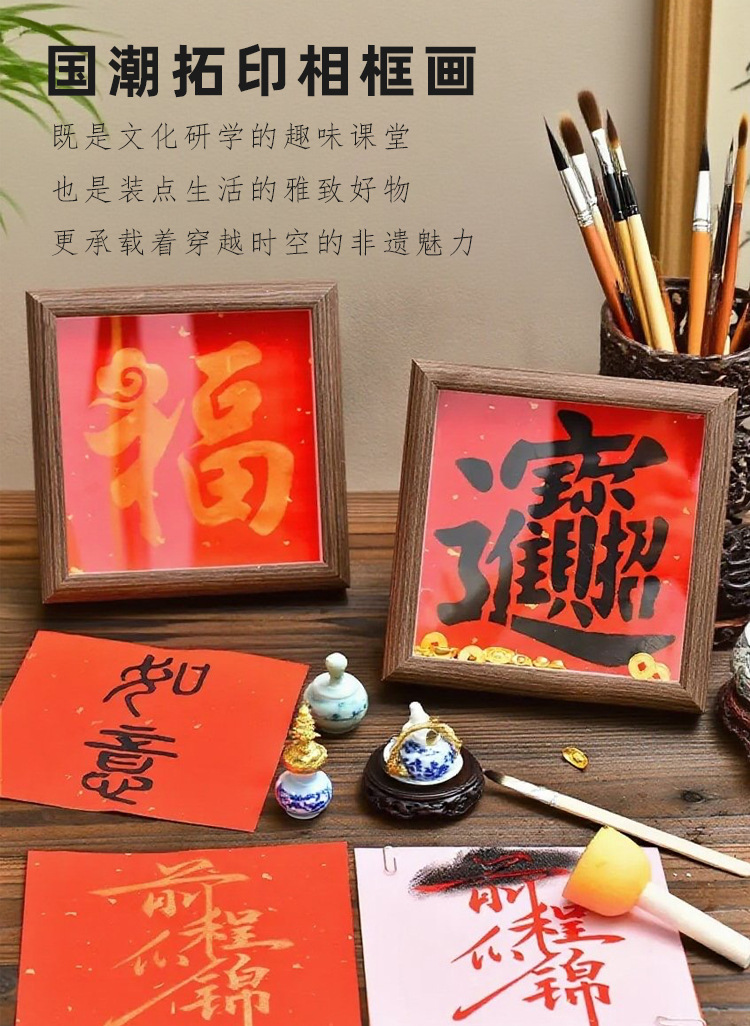 国潮拓印相框画
既是文化研学的趣味课堂
也是装点生活的雅致好物
更承载着穿越时空的非遗魅力
福
招财进宝
如意
前程
似锦
前程
似锦